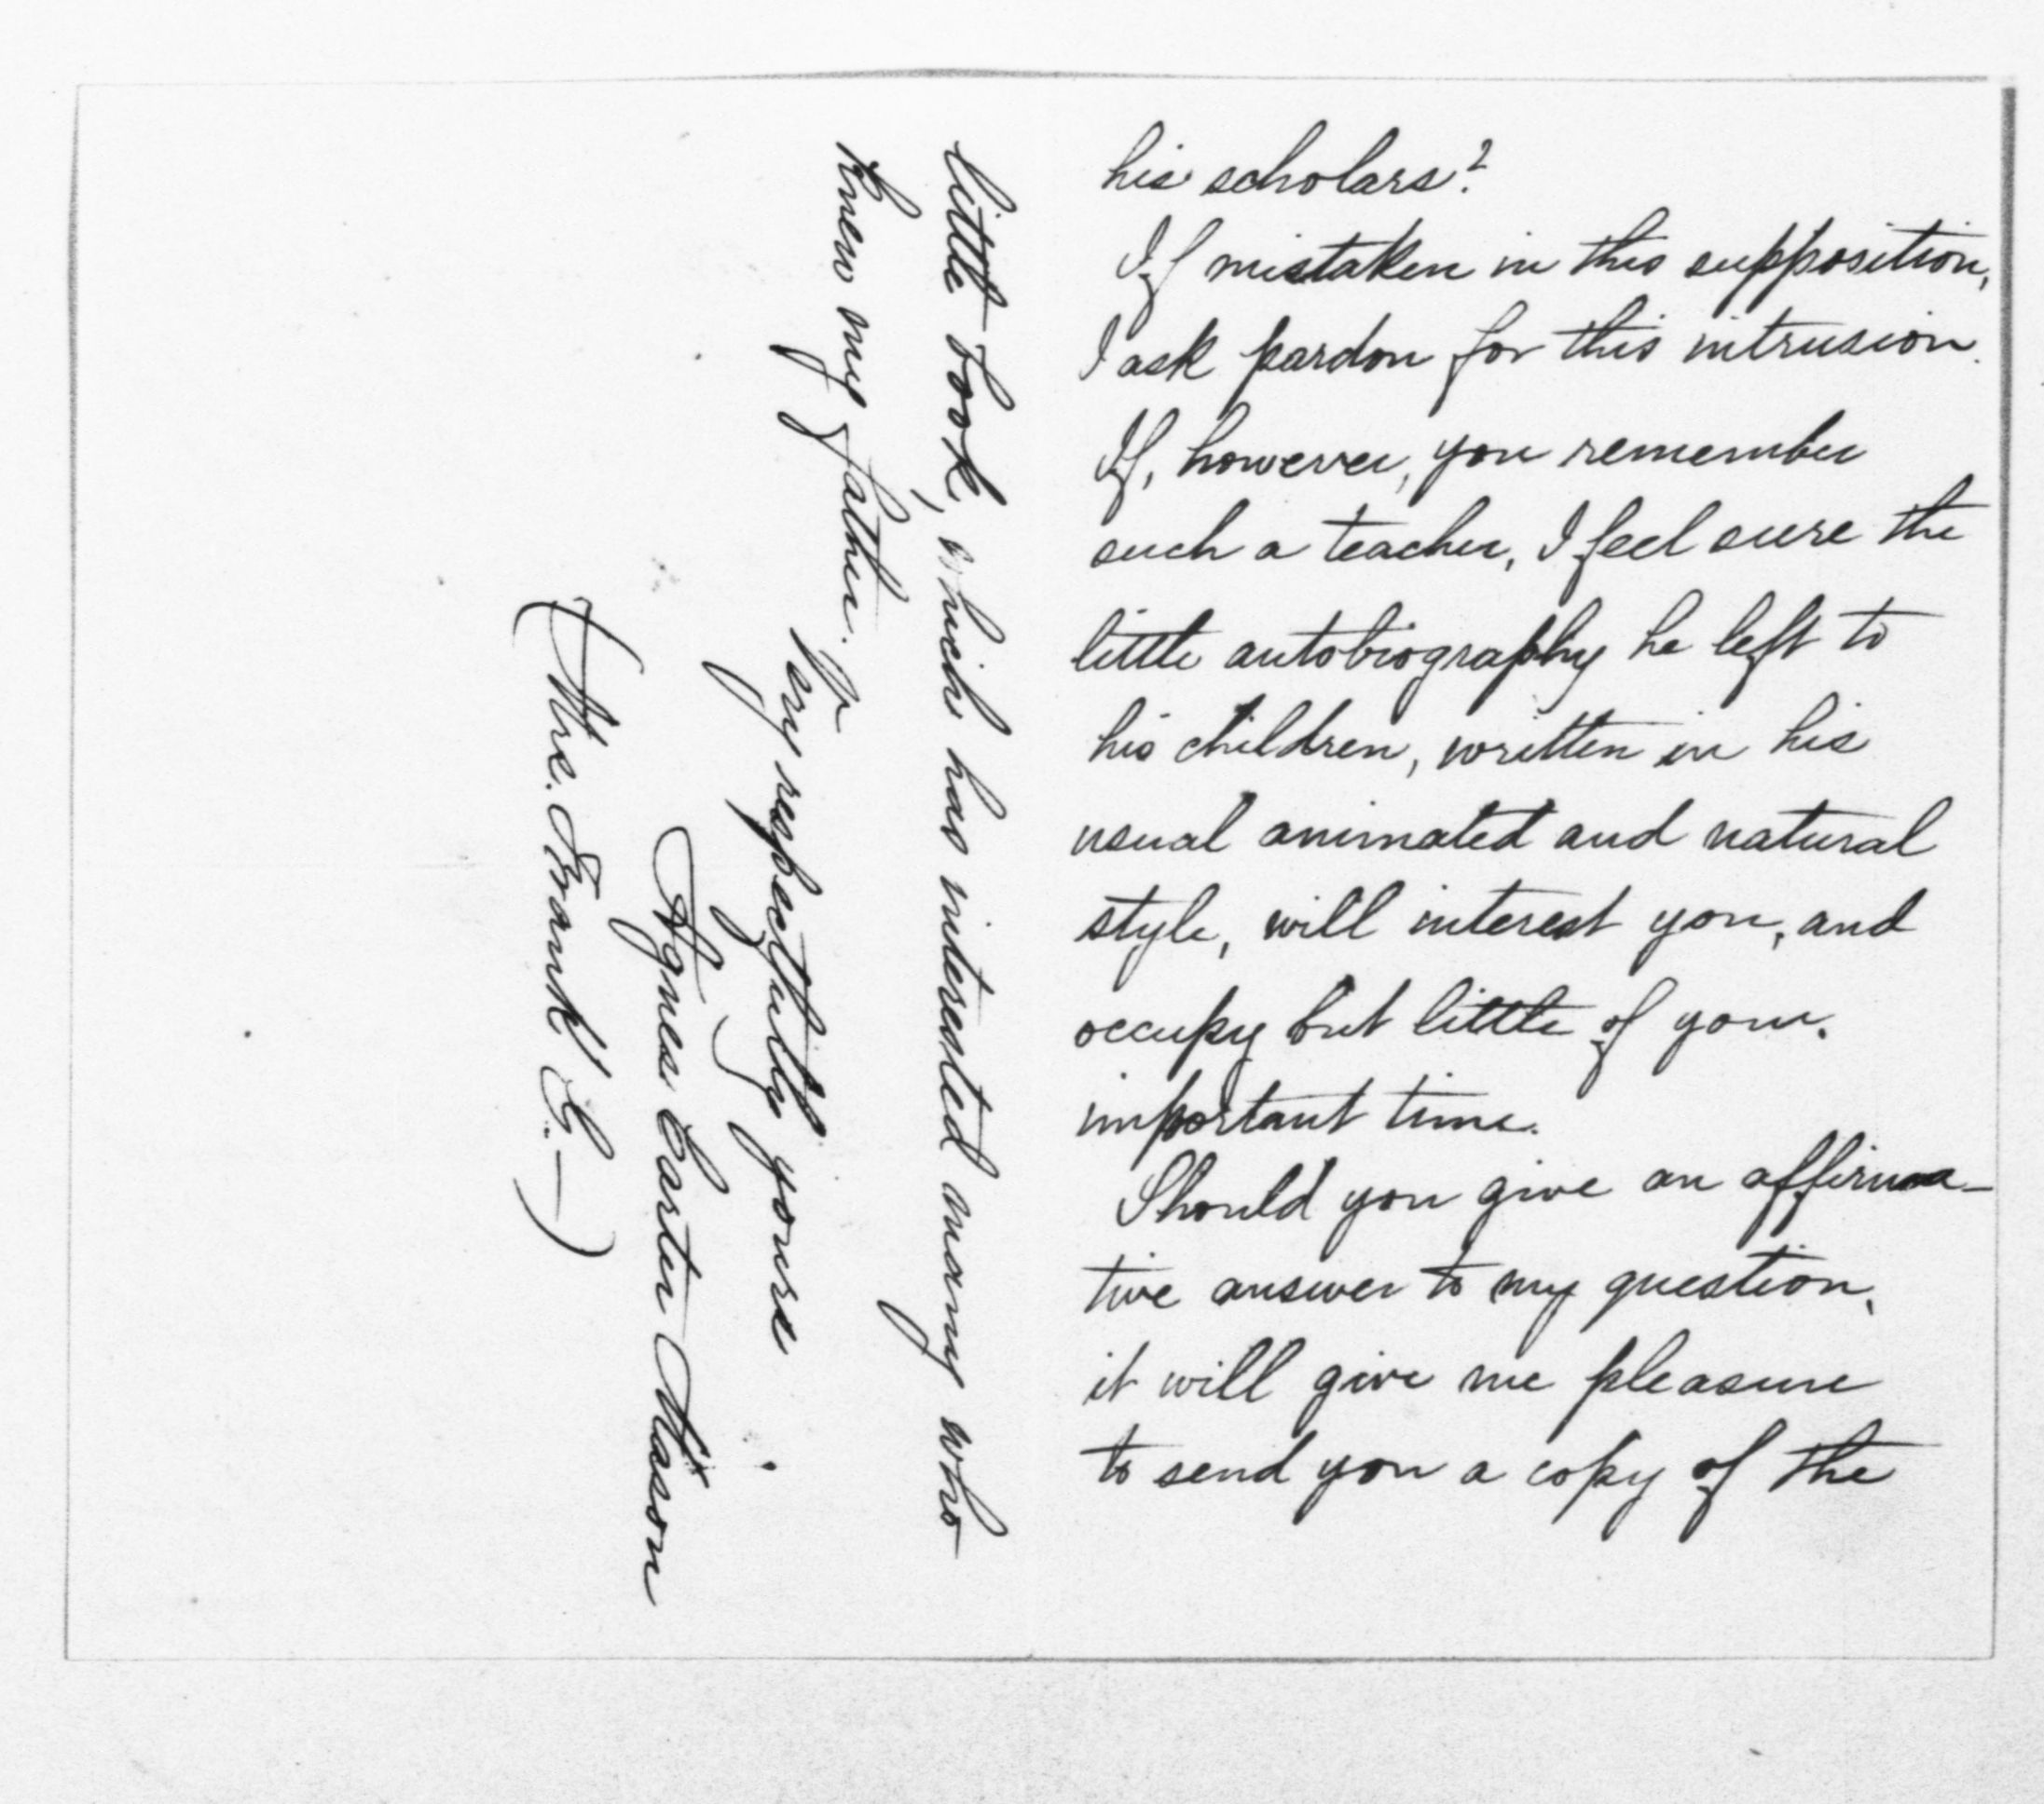 his scholars?
If mistaken in this supposition,
I ask pardon for this intrusion.
If, however, you remember
such a teacher, I feel sure the
little autobiography he left to
his children, written in his
usual animated and natural
style, will interest you, and
occupy but little of your.
important time.
Should you give an affirma-
tive answer to my question,
it will give me pleasure
to send you a copy of the
little book, which has interested many who
knew my father.
Very respectfully yours
Agnes Carter Mason
(Mrs. Frank G.—)